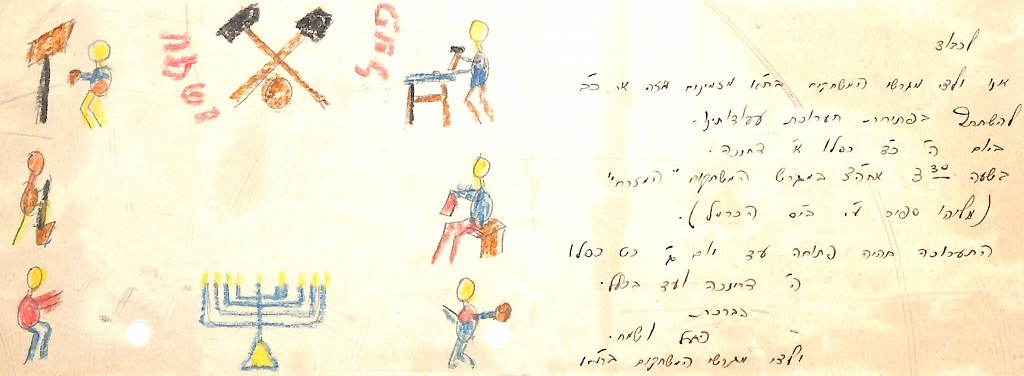 פעל
ושמח
לכבוד
אנו ילדי מגרשי המשחקים בת"א מזמינים בזה את כב'
להשתתף בפתיחת תערוכת עבודותינו.
ביום ה' כ"ד כסלו א' דחנוכה.
בשעה 3³⁰ אחה"צ במגרש המשחקים "המזרח"
(אליהו ספיר ע"י בי"ס הכרמל).
התערוכה תהיה פתוחה עד יום ג' כט כסלו
ה' דחנוכה ועד בכלל.
בברכת
פעל ושמח.
ילדי מגרשי המשחקים בת"א